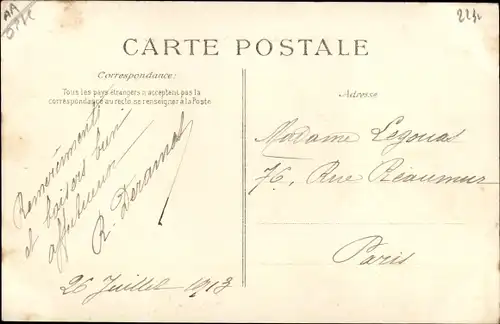 CARTE POSTALE
Correspondance:
Tous les pays étrangers n'acceptent pas la
correspondance au recto, se renseigner à la Poste
Adresse
Remerciements
et baisers bien
affectueux
R.
26 Juillet 1913
Madame Legouas
76, Rue Réaumur
Paris